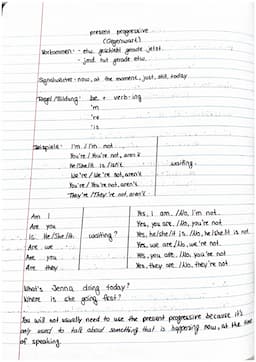 present progressive
(Gegenwart)
Vorkommen: - etw. geschieht gerade jetzt.
- jmd. tut gerade etw.
Signalwörter - now, at the moment, just, still, today
Regel / Bildung: be + verb-ing
'm
're
'is
Beispiele: I'm / I'm not
You're / You're not, aren't
He/She/It is / isn't
We're / We're not, aren't waiting.
You're / You're not, aren't
They're / They're not, aren't
Am I Yes, I am. / No, I'm not.
Are you Yes, you are. / No, you're not
Is He/She/It waiting? Yes, he/she/it is. / No, he/she/it is not.
Are we Yes, we are. / No, we're not.
Are you Yes, you are. / No, you're not
Are they Yes, they are. / No, they're not.
What's Jenna doing today?
Where is she going first?
You will not usually need to use the present progressive because it's
only used to talk about something that is happening now, at the time
of speaking.